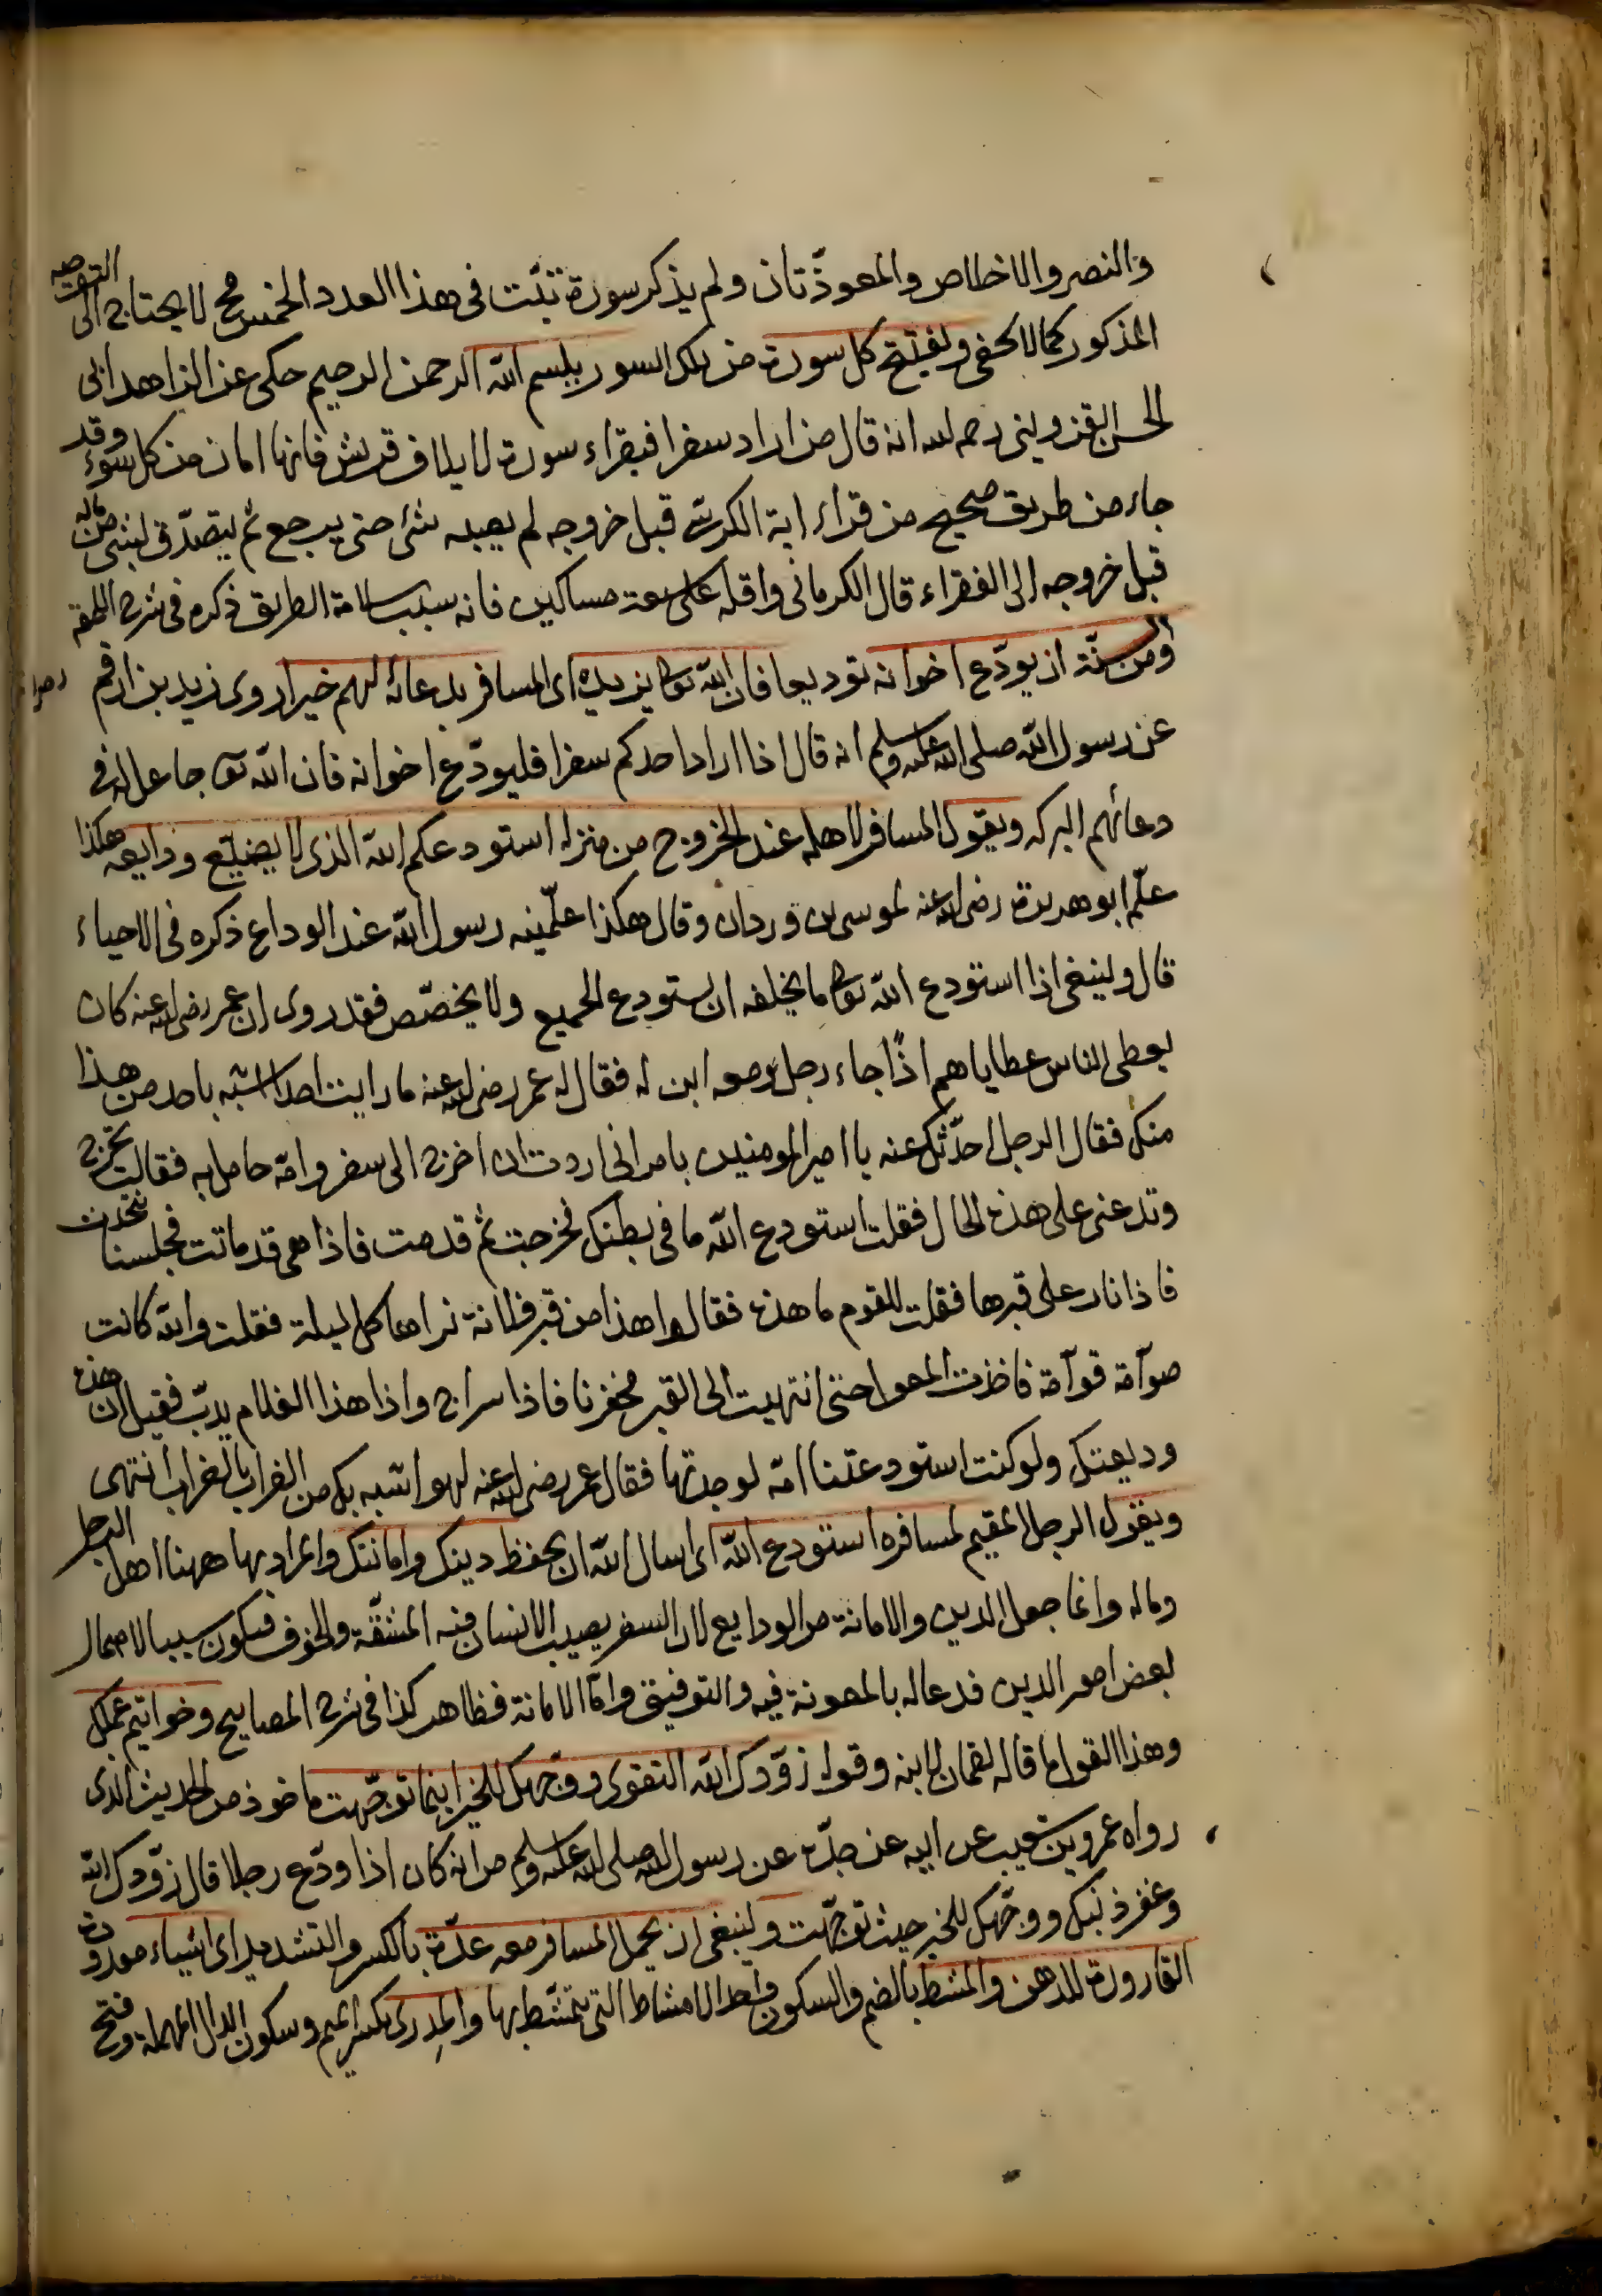 والنصر والاخلاص والمعوذّتان ولم يذكر سورة تبّت فى هذا العدد الخمس مح لا يحتاج الى التوجيه
المذكور كما لا يخفى ويفتتح كل سورة من تلك السور ببسم الله الرحمن الرحيم حكى عن الزاهد ابى
الحسن القزوينى رحمه الله انه قال من اراد سفرا فيقراء سورة لايلاف قريش فانها امان من كل سوء وقد
جاء من طريق صحيح من قراء اية الكرسى قبل خروجه لم يصبه شئ حتى يرجع ثم يتصدّق بشئ من ماله
قبل خروجه الى الفقراء قال الكرمانى واقله على سبعة مساكين فانه سبب سلامة الطريق ذكره فى شرح
ومن السنّة ان يودّع اخوانه توديعا فان الله تعالى يزيده اى المسافر بدعائه لهم خيرا روى زيد بن ارقم
عن رسول الله صلى الله عليه وسلم انه قال اذا اراد احدكم سفرا فليودّع اخوانه فان الله تعالى جاعل له فى
دعائهم البركه ويقول المسافر لاهله عند الخروج من منزله استودعكم الله الذى لا يضيّع ودايعه هكذا
علّم ابو هريرة رضى الله عنه لموسى بن وردان وقال هكذا علّمنيه رسول الله عند الوداع ذكره فى الاحياء
قال وينبغى اذا استودع الله تعالى ما يخلفه ان يستودع الجميع ولا يخصّص فقد روى ان عمر رضى الله عنه كان
يعطى الناس عطاياهم اذًا جاء رجل ومعه ابن له فقال له عمر رضى الله عنه ما رايت احدا اشبه باحد من هذا
منك فقال الرجل احدّثك عنه يا امير المومنين بامر انى اردت ان اخرج الى سفر وامّه حامل به فقالت تخرج
وتدعنى على هذه الحال فقلت استودع الله ما فى بطنك فخرجت ثم قدمت فاذا هى قد ماتت فجلسنا نتحدث
فاذا نار على قبرها فقلت للقوم ما هذه فقالوا هذا من قبر فلانة نراها كل ليلة فقلت والله كانت
صوآمة قوآمة فاخذت المعول حتى انتهيت الى القبر فحفرنا فاذا سراج واذا هذا الغلام يدبّ فقيل ان هذه
وديعتك ولو كنت استودعتنا امّه لوجدتها فقال عمر رضى الله عنه لهو اشبه بك من الغراب بالغراب انتهى
ويقول الرجل المقيم لمسافره استودع الله اى اسال الله ان يحفظ دينك وامانتك والمراد بها ههنا اهل الرجل
وماله وانما جعل الدين والامانة من الودايع لان السفر يصيب الانسان فيه المشقّة والخوف فيكون سببا لاهمال
بعض امور الدين فدعا له بالمعونة فيه والتوفيق وامّا الامانة فظاهر كذا فى شرح المصابيح وخواتيم عملك
وهذا القول ما قاله لقمان لابنه وقوله زوّدك الله التقوى ووجّهك للخير اينما توجّهت ماخوذ من الحديث الذى
رواه عمرو بن شعيب عن ابيه عن جدّه عن رسول الله صلى الله عليه وسلم من انه كان اذا ودّع رجلا قال زوّدك الله
وغفر ذنبك ووجّهك للخير حيث توجّهت وينبغى ان يحمل المسافر معه عدّة بالكسر والتشديد اى اشياء معدودة
القارورة للدهن والمشط بالضم والسكون واحد الامشاط التى يتمشّط بها والمِدرى بكسر الميم وسكون الدال المهملة وفتح